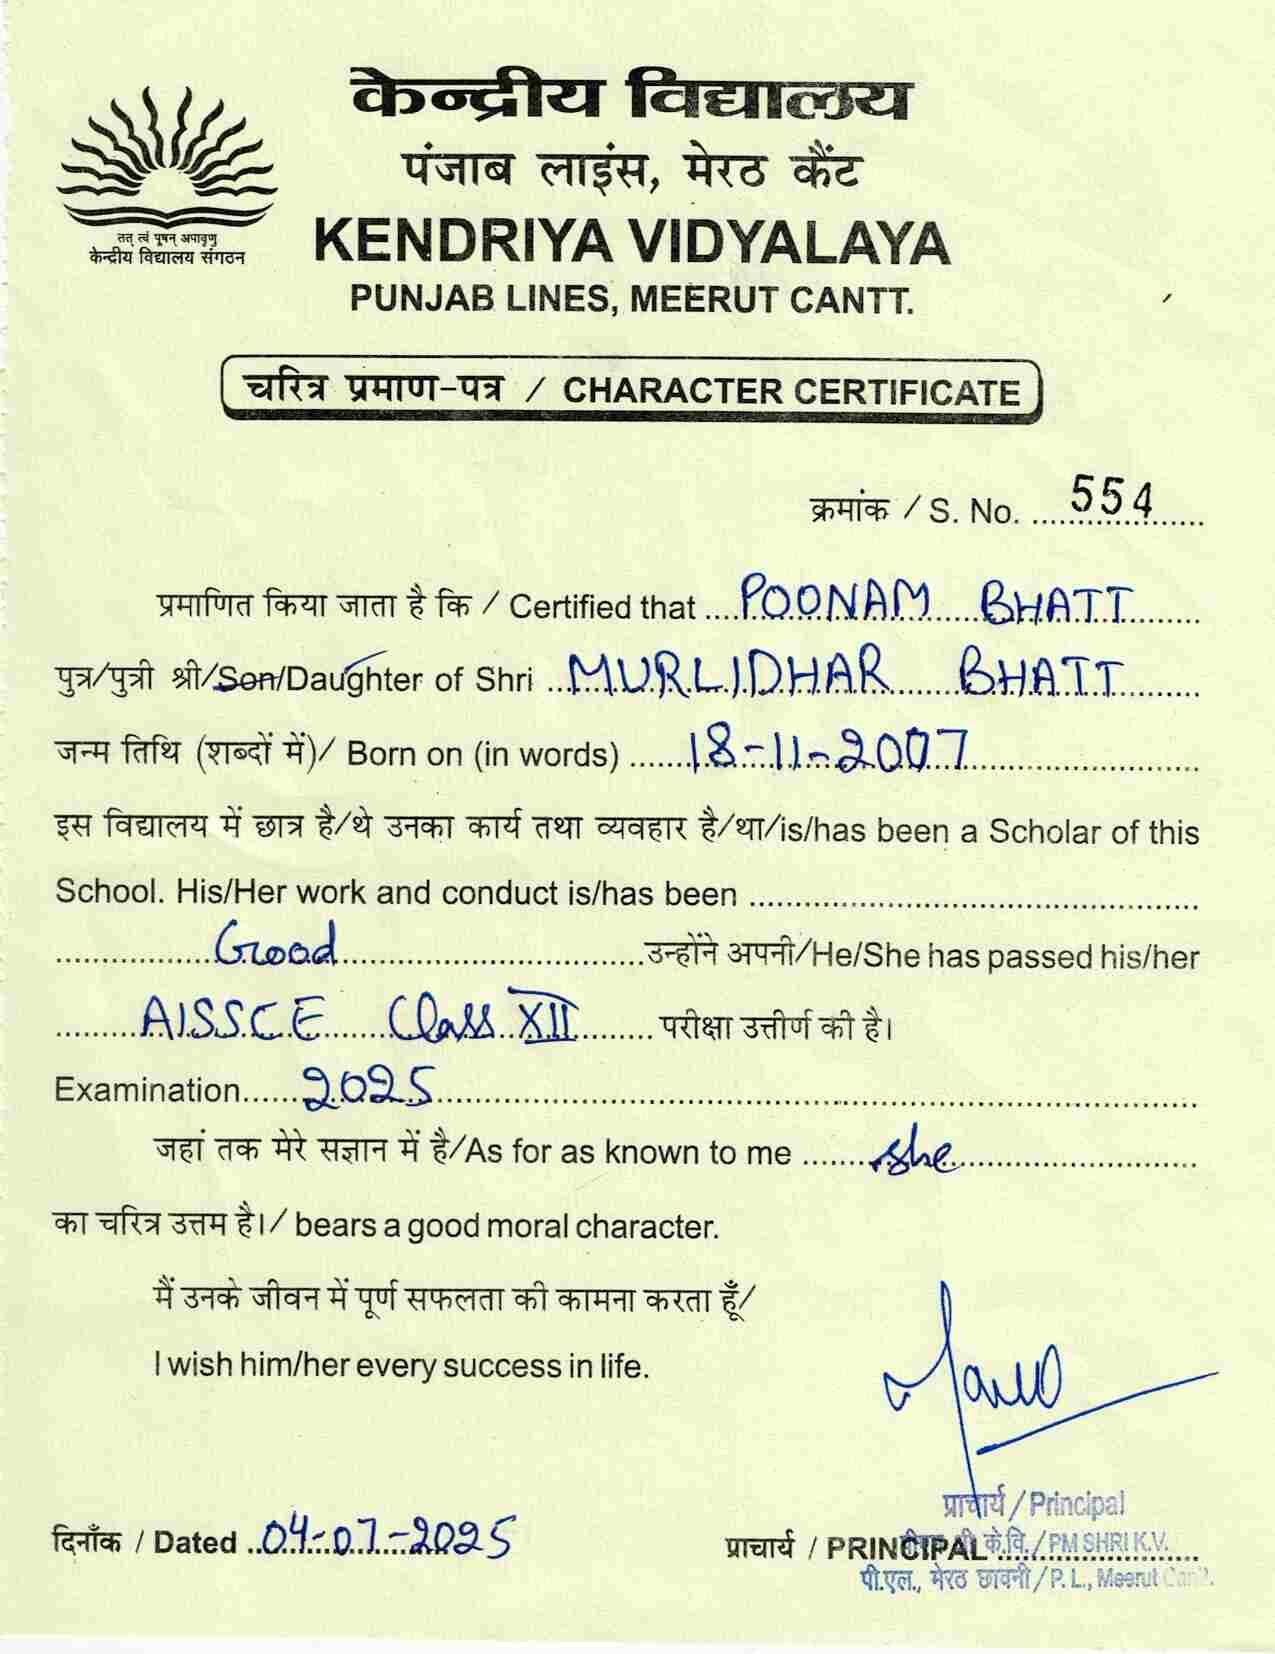 केन्द्रीय विद्यालय
पंजाब लाइंस, मेरठ कैंट
KENDRIYA VIDYALAYA
PUNJAB LINES, MEERUT CANTT.
तत् त्वं पूषन् अपावृणु
केन्द्रीय विद्यालय संगठन
चरित्र प्रमाण-पत्र / CHARACTER CERTIFICATE
क्रमांक / S. No. 554
प्रमाणित किया जाता है कि / Certified that POONAM BHATT
पुत्र/पुत्री श्री/Son/Daughter of Shri MURLIDHAR BHATT
जन्म तिथि (शब्दों में)/ Born on (in words) 18-11-2007
इस विद्यालय में छात्र है/थे उनका कार्य तथा व्यवहार है/था/is/has been a Scholar of this
School. His/Her work and conduct is/has been
Good उन्होंने अपनी/He/She has passed his/her
AISSCE Class XII परीक्षा उत्तीर्ण की है।
Examination 2025
जहां तक मेरे सज्ञान में है/As for as known to me she
का चरित्र उत्तम है।/ bears a good moral character.
मैं उनके जीवन में पूर्ण सफलता की कामना करता हूँ/
I wish him/her every success in life.
प्राचार्य / Principal
दिनाँक / Dated 04-07-2025 प्राचार्य / PRINCIPAL
के.वि. / PM SHRI K.V.
पी.एल., मेरठ छावनी / P. L., Meerut Cantt.